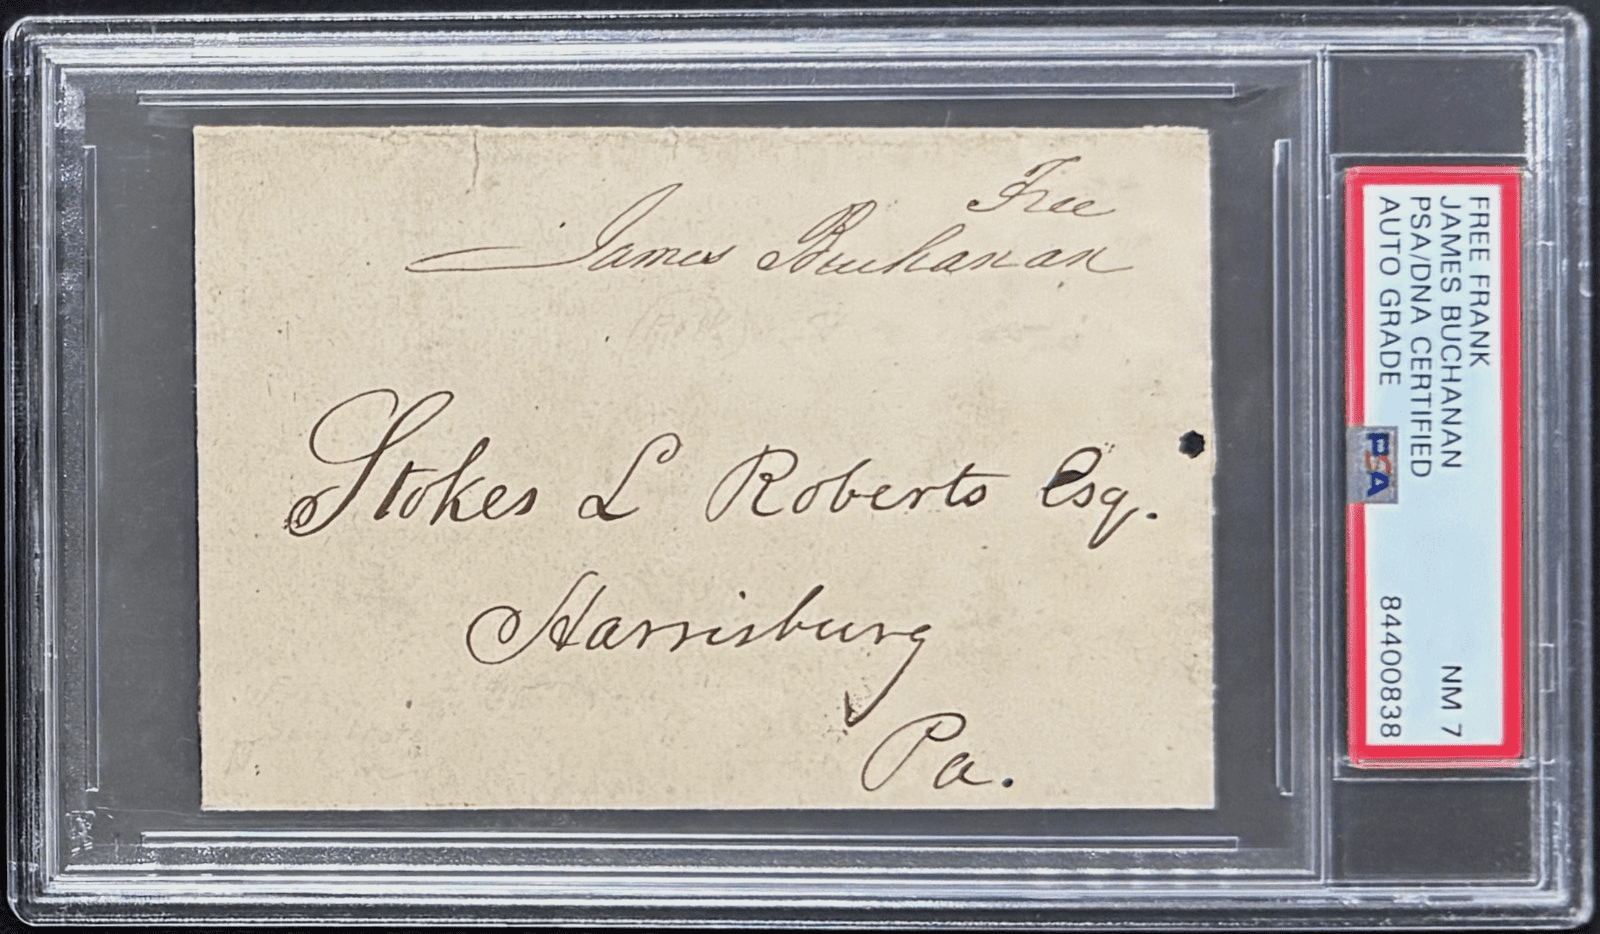 Free
James Buchanan
Stokes L Roberts Esq.
Harrisburg
Pa.
FREE FRANK
JAMES BUCHANAN
PSA/DNA CERTIFIED
AUTO GRADE
NM 7
84400838
PSA